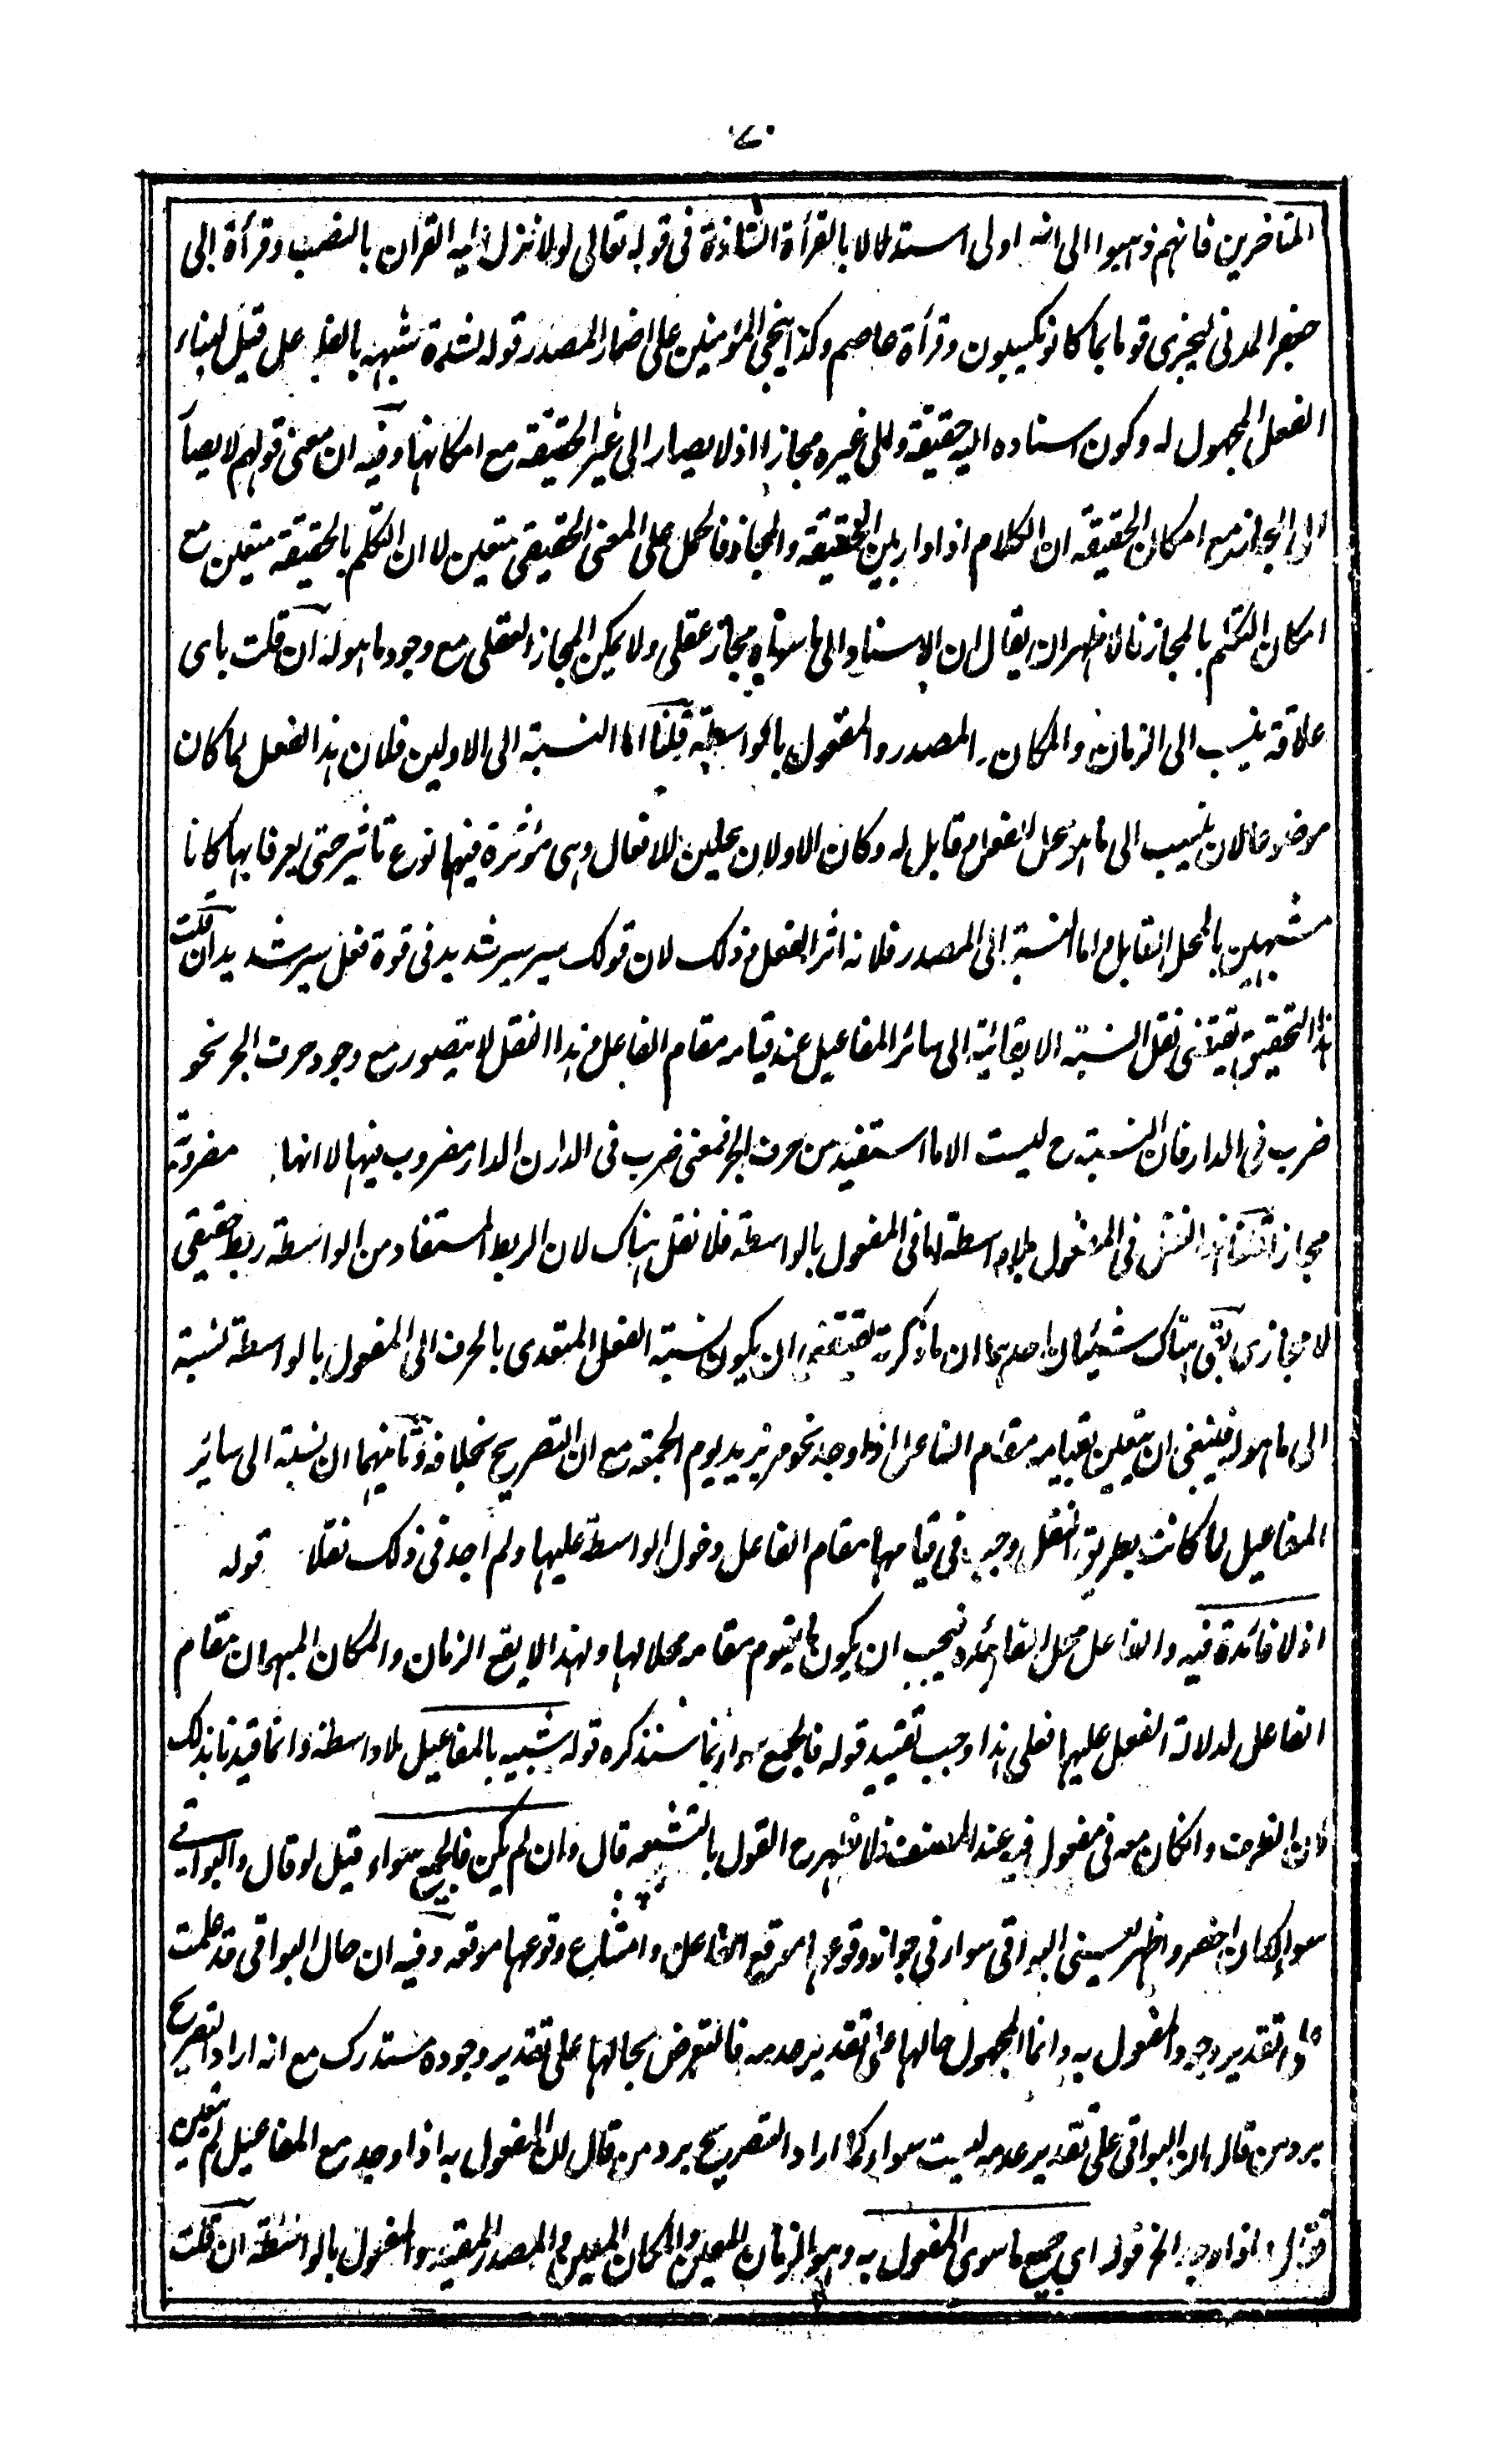 ٧٠
المتاخرين فانهم ذهبوا الى انه اولى استدلالا بالقرأة الشاذة فى قوله تعالى لولا نزل اليه القران بالنصب وقرأة ابى
جعفر المدنى ليجزى قوما بما كانوا يكسبون وقرأة عاصم وكذا ينجى المؤمنين على اضمار المصدر قوله لشدة شبهه بالفاعل قيل لبناء
الفعل المجهول له وكون اسناده اليه حقيقة والى غيره مجازا اذ لا يصار الى غير الحقيقة مع امكانها وفيه ان معنى قولهم لا يصار
الى المجاز مع امكان الحقيقة ان الكلام اذا دار بين الحقيقة والمجاز فالحمل على المعنى الحقيقى متعين لا ان التكلم بالحقيقة متعين مع
امكان التكلم بالمجاز فالاظهر ان يقال ان الاسناد الى ما سواه مجاز عقلى ولا يمكن المجاز العقلى مع وجود ما هو له ان قلت باى
علاقة ينسب الى الزمان والمكان والمصدر والمفعول بالواسطة قلنا اما النسبة الى الاولين فلان هذا الفعل لما كان
موضوعا لان ينسب الى ما هو محل الفعل وقابل له وكان الاولان محلين للافعال وهى مؤثرة فيهما نوع تاثير حتى يعرفا بها كانا
مشبهين بالمحل القابل واما النسبة الى المصدر فلانه اثر الفعل وذلك لان قولك سير سير شديد فى قوة فعل سير شديد ان قلت
هذا التحقيق يقتضى نقل النسبة الايقاعية الى سائر المفاعيل عند قيامه مقام الفاعل وهذا النقل لا يتصور مع وجود حرف الجر نحو
ضرب فى الدار فان النسبة ح ليست الا ما استفيد من حرف الجر فمعنى ضرب فى الدار ان الدار مضروب فيها لا انها مضروبة
مجازا قلنا هذا النقل فى المفعول بلا واسطة اما فى المفعول بالواسطة فلا نقل هناك لان الربط المستفاد من الواسطة ربط حقيقى
لا مجازى بقى هناك شيئان احدهما ان ما ذكرته يقتضى ان يكون نسبة الفعل المتعدى بالحرف الى المفعول بالواسطة نسبة
الى ما هو له فينبغى ان يتعين لقيامه مقام الفاعل اذا وجد نحو مر بزيد يوم الجمعة مع ان التصريح بخلافه وثانيهما ان نسبة الى سائر
المفاعيل لما كانت بطريق النقل وجب فى قيامها مقام الفاعل دخول الواسطة عليها ولم اجد فى ذلك نقلا قوله
اذ لا فائدة فيه والفاعل محل الفائدة فيجب ان يكون ما يقوم مقامه محلا لها ولهذا لا يقع الزمان والمكان المبهمان مقام
الفاعل لدلالة الفعل عليهما فعلى هذا وجب تقييد قوله فالجميع سواء بما سنذكره قوله شبيه بالمفاعيل بلا واسطة وانما قيدنا بذلك
لان الظرف وان كان معه فى مفعول فيه عند المصنف فلا يظهر ح القول بالتشبيه قال وان لم يكن فالجميع سواء قيل لو قال والبواقى
سواء لكان اخصر واظهر يعنى البواقى سواء فى جواز وقوعها موقع الفاعل وامتناع وقوعها موقعه وفيه ان حال البواقى قد علمت
على تقدير وجود المفعول به وانما المجهول حالها على تقدير عدمه فالتعرض بحالها على تقدير وجوده مستدرك مع انه اراد التصريح
برد من قال ان البواقى على تقدير عدمه ليست سواء كما اراد التصريح برد من قال ان المفعول به اذا وجد مع المفاعيل لم يتعين
فقال اذا وجد الخ قوله اى جميع ما سوى المفعول به وهو الزمان المعين والمكان المعين والمصدر المقيد والمفعول بالواسطة ان قلت